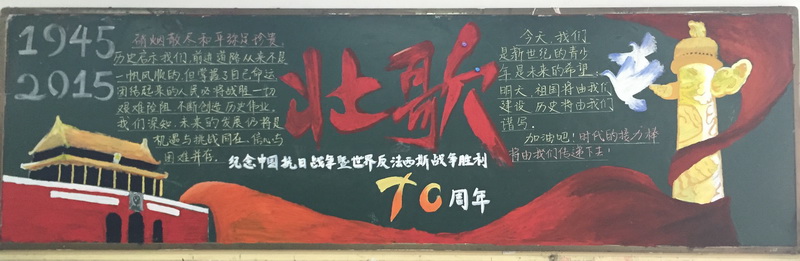 1945
2015
硝烟散尽和平弥足珍贵。
历史启示我们,前进道路从来不是
一帆风顺的,但掌握了自己命运、
团结起来的人民必将战胜一切
艰难险阻,不断创造历史伟业。
我们深知,未来的发展仍将是
机遇与挑战同在、信心与
困难并存。
壮歌
纪念中国抗日战争暨世界反法西斯战争胜利
70周年
今天,我们
是新世纪的青少
年是未来的希望;
明天,祖国将由我们
建设,历史将由我们
谱写。
加油吧!时代的接力棒
将由我们传递下去!